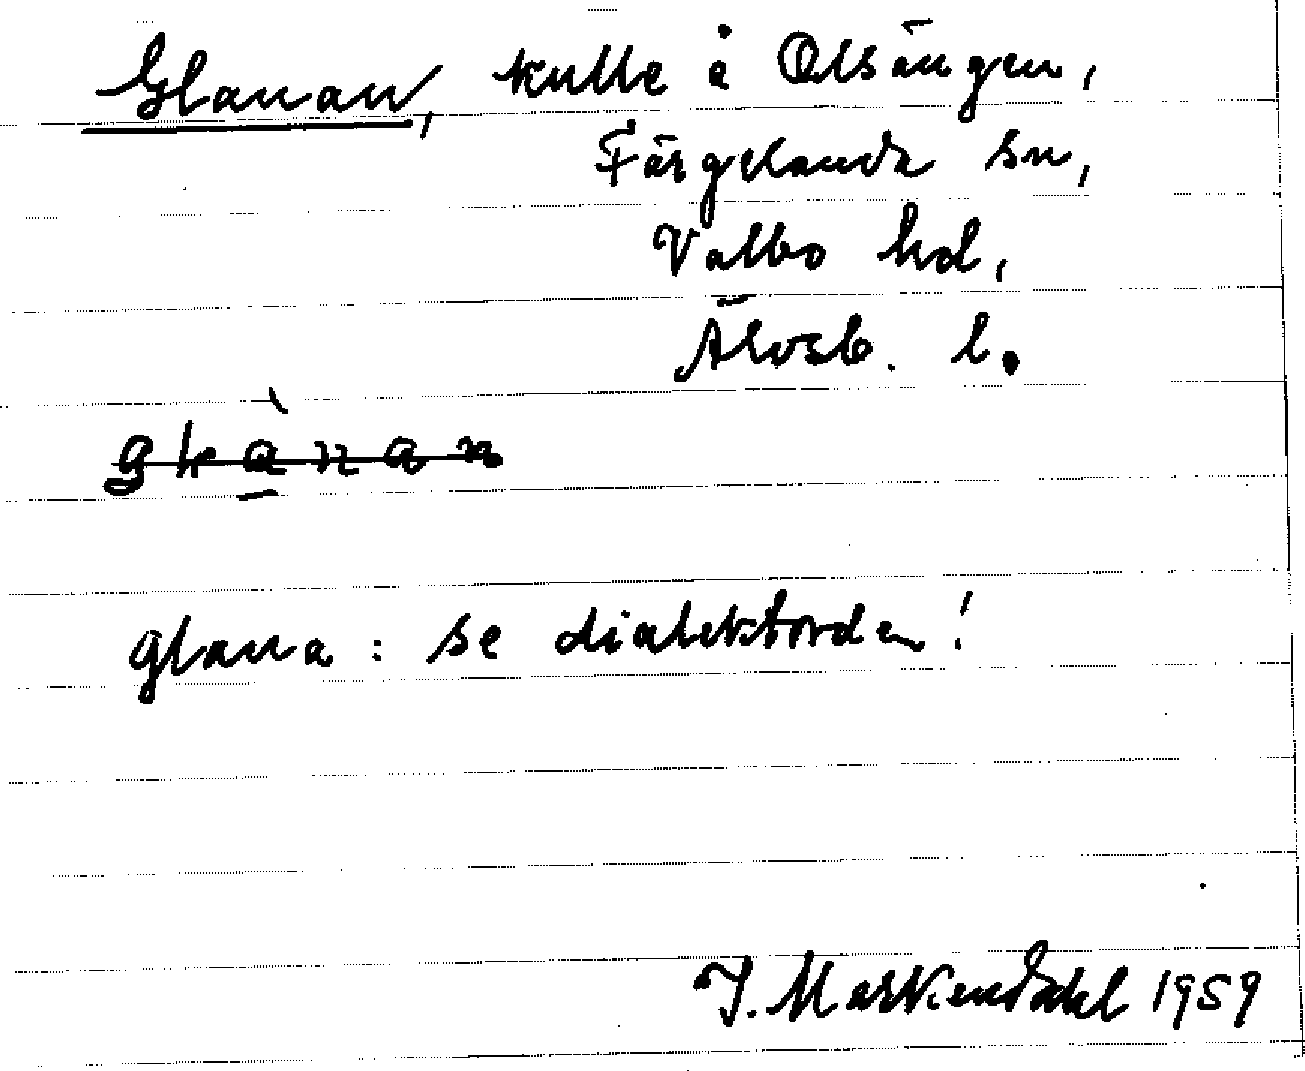 Glanan, kulle å Olsängen,
Färgelanda sn,
Valbo hd,
Älvsb. l.
glana: se dialektorden!
J. Markendahl 1959